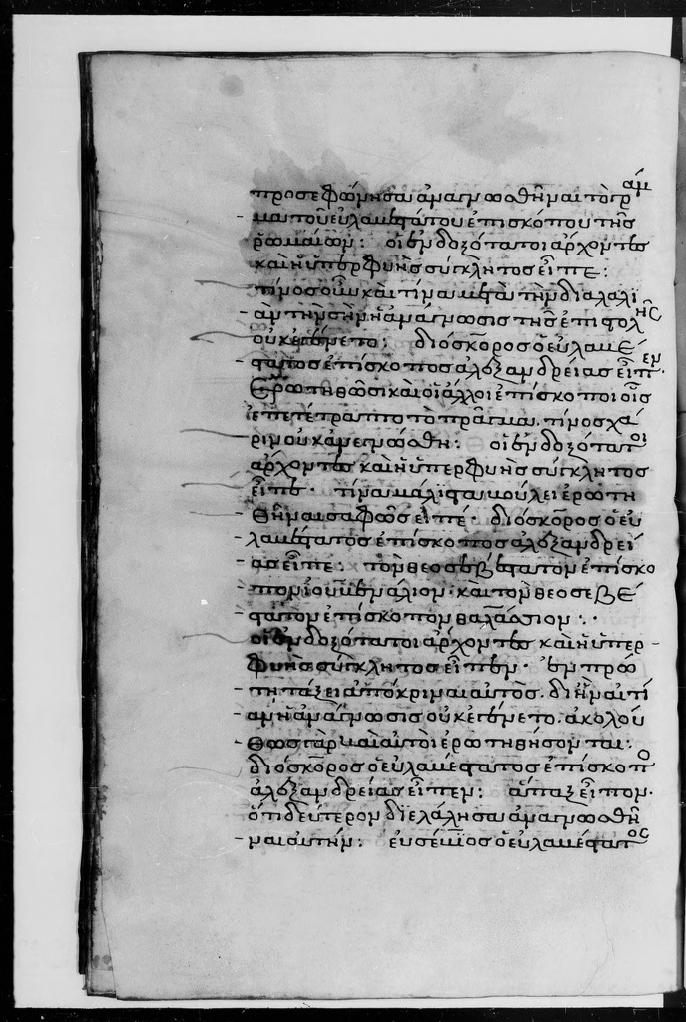 προσεφώνησα ἀναγνωσθῆναι τὸ γράμ
μα τοῦ εὐλαβεστάτου ἐπισκόπου τῆς
ῥωμαίων: οἱ ἐνδοξότατοι ἄρχοντες
καὶ ἡ ὑπερφυὴς σύγκλητος εἶπε:
τίνος οὖν καὶ τίνα μετὰ τὴν διαλαλι
ὰν τὴν σὴν ἡ ἀνάγνωσις τῆς ἐπιστολῆς
οὐκ ἐγένετο: διόσκορος ὁ εὐλαβέ
στατος ἐπίσκοπος ἀλεξανδρείας εἶπεν·
Ἐρωτηθῶσι καὶ οἱ ἄλλοι ἐπίσκοποι οἷς
ἐπετέτραπτο τὸ πρᾶγμα. τίνος χά
ριν οὐκ ἀνεγνώσθη: οἱ ἐνδοξότατοι
ἄρχοντες καὶ ἡ ὑπερφυὴς σύγκλητος
εἶπε· τίνα μάλιστα βούλει ἐρωτη
θῆναι σαφῶς εἰπέ· διόσκορος ὁ εὐ
λαβέστατος ἐπίσκοπος ἀλεξανδρεί
ας εἶπε: τὸν θεοσεβέστατον ἐπίσκο
πον ἰουβενάλιον· καὶ τὸν θεοσεβέ
στατον ἐπίσκοπον θαλάσσιον:·
οἱ ἐνδοξότατοι ἄρχοντες καὶ ἡ ὑπερ
φυὴς σύγκλητος εἶπεν· ἐν πρώ
τη τάξει ἀπόκριναι αὐτὸς. δι ἣν αἰτί
αν ἡ ἀνάγνωσις οὐκ ἐγένετο. ἀκολού
θως γὰρ καὶ αὐτοὶ ἐρωτηθήσονται:
διόσκορος ὁ εὐλαβέστατος ἐπίσκοπο
ἀλεξανδρείας εἶπεν: ἅπαξ εἶπον·
ὅτι δεύτερον διελάλησα ἀναγνωσθῆ
ναι αὐτήν: εὐσέβιος ὁ εὐλαβέστατος